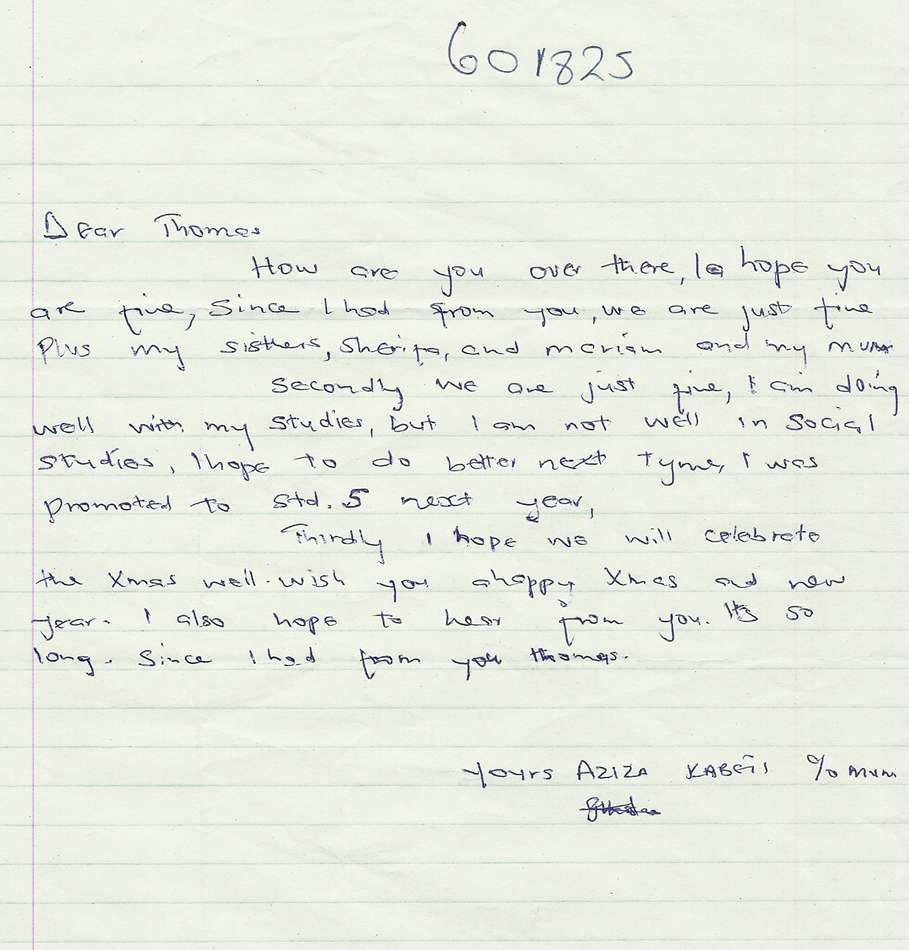 601825
Dear Thomas
How are you over there, I hope you
are fine, Since I had from you, we are just fine
Plus my sisthers, Sherifa, and mariam and my mum
Secondly we are just fine, I am doing
well with my studies, but I am not well in Social
studies, I hope to do better next Tyme, I was
promoted to std. 5 next year,
Thirdly I hope we will celebrate
the Xmas well. wish you ahappy Xmas and new
year. I also hope to hear from you. It's so
long. Since I had from you thomas.
yours AZIZA c/o mum